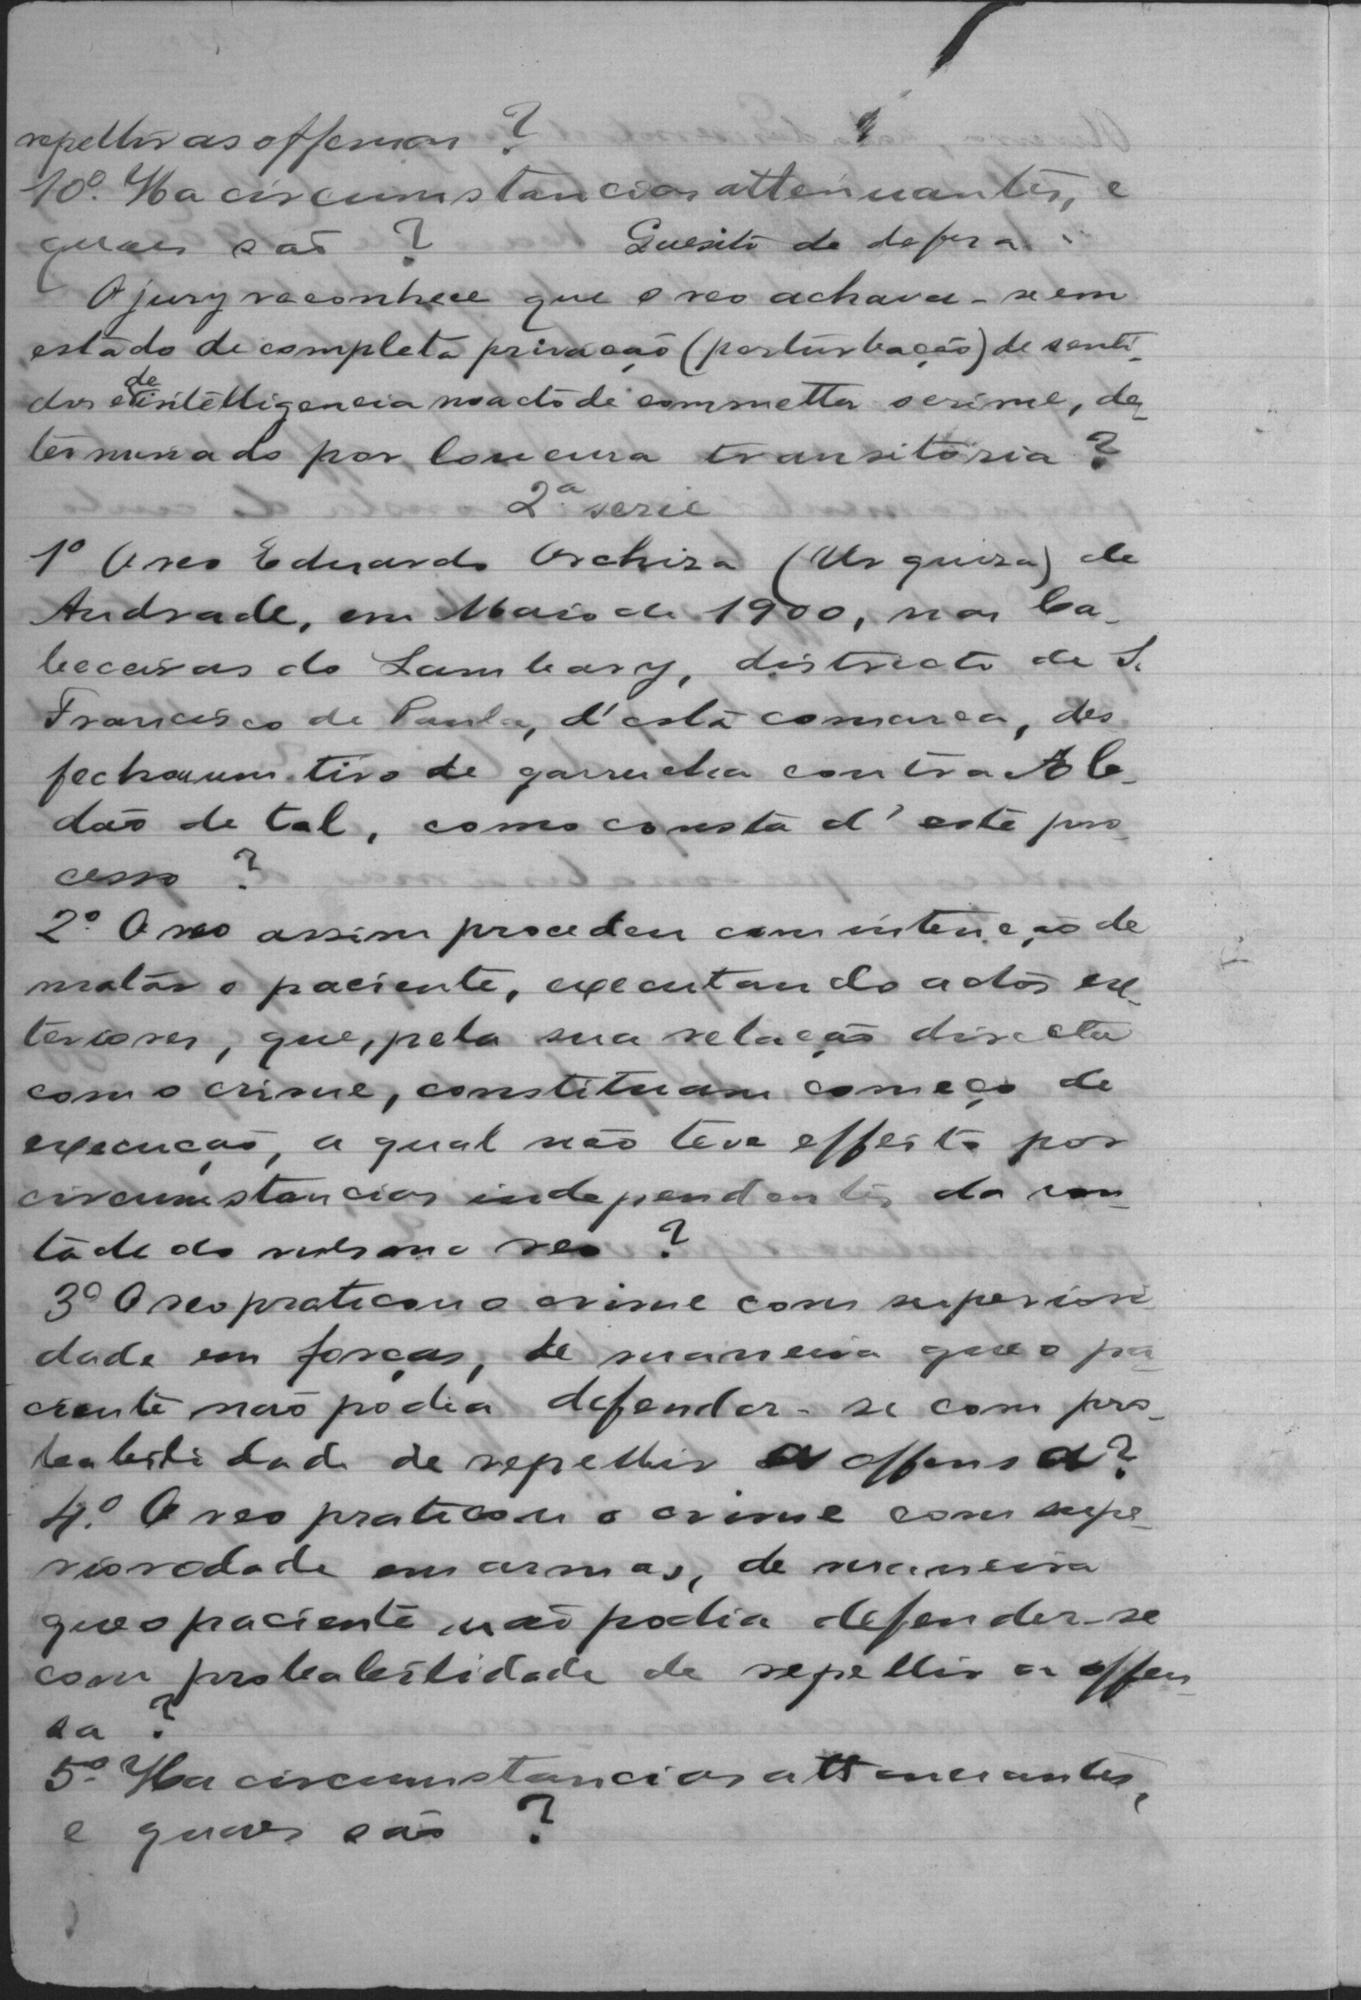 repellir as offensas ?
10º. Ha circumstancias attenuantes, e
quaes são ? Quesito de defesa.
O jury reconhece que o reo achava-se em
estado de completa privação (perturbação) de senti-
dos e de intelligencia no acto de commetter o crime, de-
terminado por loucura transitoria ?
2ª serie
1º O reo Eduardo Orchiza (Urquiza) de
Andrade, em Maio de 1900, nas Ca-
beceiras do Lambary, districto de S.
Francisco de Paula, d'esta comarca, des
fechou um tiro de garrucha contra Ab-
dão de tal, como consta d'este pro-
cesso ?
2º. O reo assim procedeu com intenção de
matar o paciente, executando actos ex-
teriores, que, pela sua relação directa
com o crime, constituam começo de
execução, a qual não teve effeito por
circumstancias independentes da von-
tade do mesmo reo ?
3º O reo praticou o crime com superiori
dade em forças, de maneira que o pa-
ciente não podia defender-se com pro-
babilidade de repellir a offensa ?
4º. O reo praticou o crime com supe-
rioridade em armas, de maneira
que o paciente não podia defender-se
com probabilidade de repellir a offen-
sa ?
5º. Ha circumstancias attenuantes,
e quaes são ?